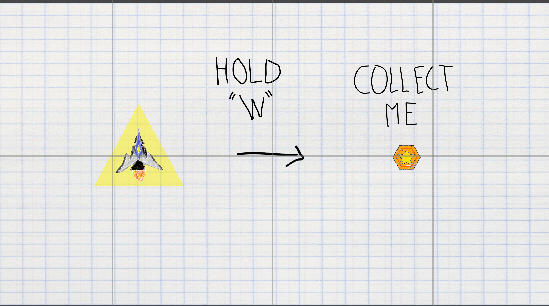 HOLD
"W"
COLLECT
ME